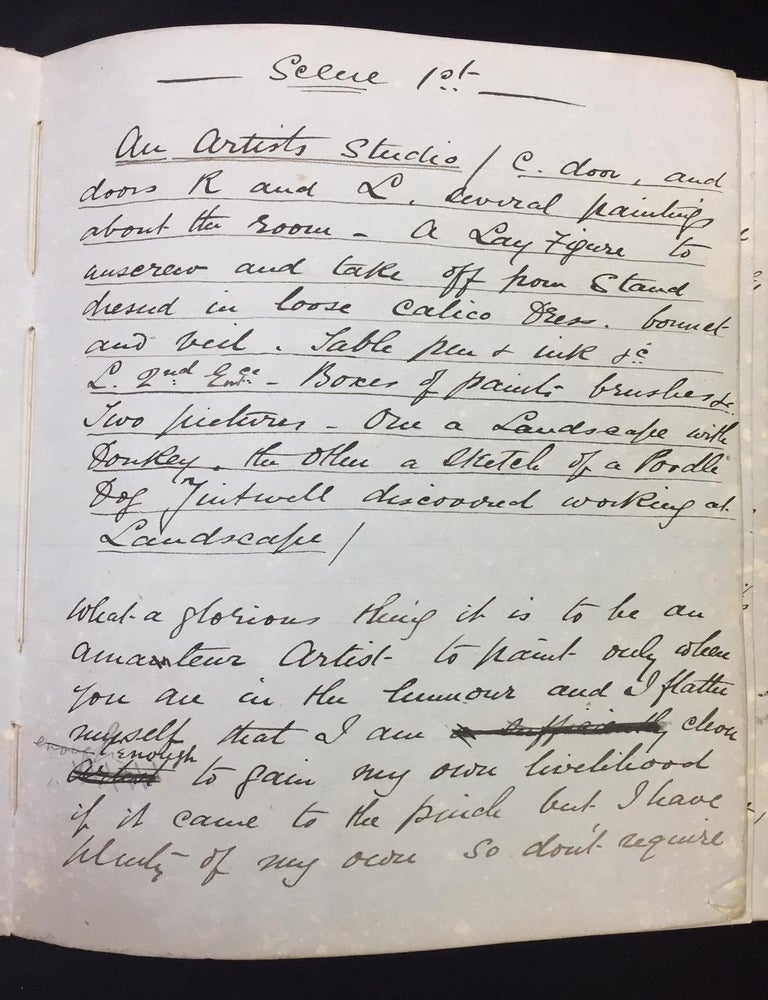 Scene 1st
An Artists Studio / C. door, and
doors R and L. several paintings
about the room - A Lay Figure to
unscrew and take off from Stand
dressed in loose calico Dress. bonnet
and veil. Table pen & ink &c
L. 2nd Entce - Boxes of paints brushes &c.
Two pictures - One a Landscape with
Donkey. the Other a Sketch of a Poodle
Dog Tintwell discovered working at
Landscape /
What a glorious thing it is to be an
amateur Artist to paint only when
you are in the humour and I flatter
myself that I am a sufficiently clever
enough Artist enough to gain my own livelihood
if it came to the pinch but I have
plenty of my own so don't require